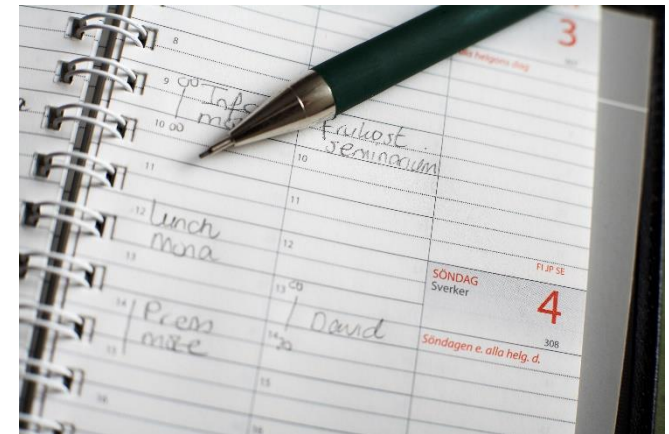 8
9 00 Info
möte
10 00
11
12 Lunch
mona
13
14 Press
möte
15
16
Frukost
seminarium
10
11
12
13 00
David
14 30
15
16
3
alla helgons dag
307
FI JP SE
SÖNDAG
Sverker
4
308
Söndagen e. alla helg. d.